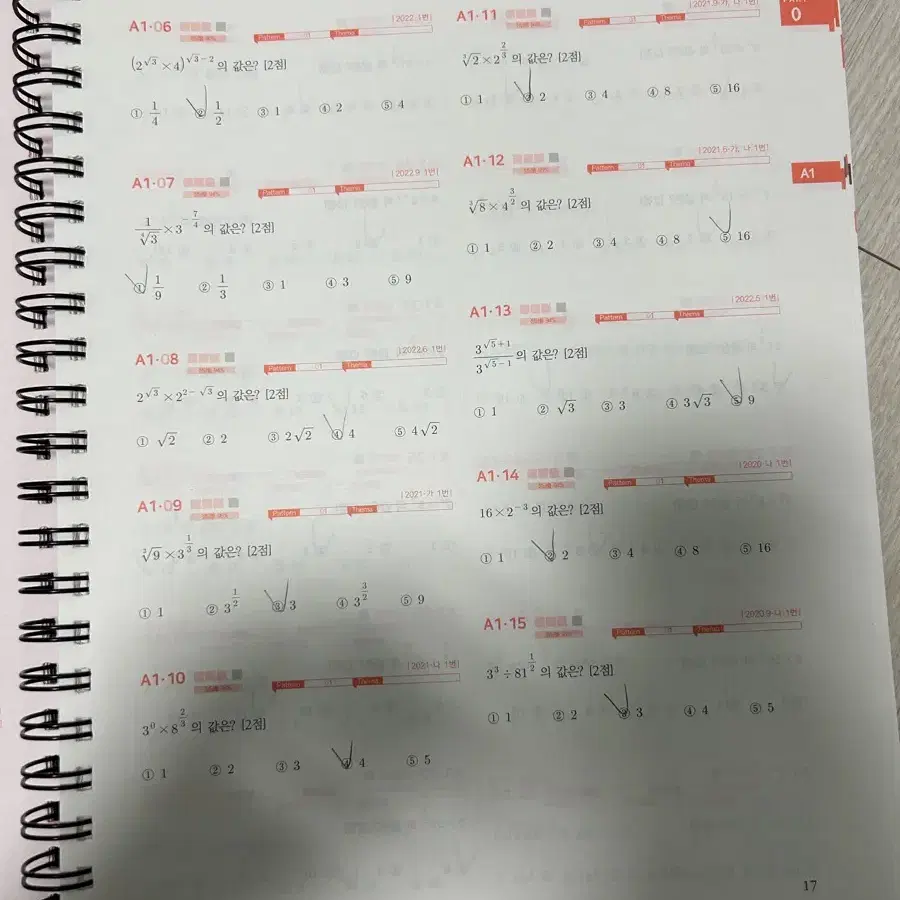 A1·06
[2022. 1번]
Pattern 01 Thema
(2^{√3} × 4)^{√3-2} 의 값은? [2점]
① 1/4 ② 1/2 ③ 1 ④ 2 ⑤ 4
A1·07
[2022.9 1번]
Pattern 1 Thema
1/∜3 × 3^{-7/4} 의 값은? [2점]
① 1/9 ② 1/3 ③ 1 ④ 3 ⑤ 9
A1·08
[2022.6 1번]
Pattern 01 Thema
2^{√3} × 2^{2-√3} 의 값은? [2점]
① √2 ② 2 ③ 2√2 ④ 4 ⑤ 4√2
A1·09
[2021·가 1번]
Pattern 01 Thema
∛9 × 3^{1/3} 의 값은? [2점]
① 1 ② 3^{1/2} ③ 3 ④ 3^{3/2} ⑤ 9
A1·10
[2021·나 1번]
Pattern 1 Thema
3^0 × 8^{2/3} 의 값은? [2점]
① 1 ② 2 ③ 3 ④ 4 ⑤ 5
A1·11
[2021.9·가, 나 1번]
Pattern 01 Thema
∛2 × 2^{2/3} 의 값은? [2점]
① 1 ② 2 ③ 4 ④ 8 ⑤ 16
A1·12
[2021.6·가, 나 1번]
Pattern 01 Thema
∛8 × 4^{3/2} 의 값은? [2점]
① 1 ② 2 ③ 4 ④ 8 ⑤ 16
A1·13
[2022.5 1번]
Pattern 01 Thema
3^{√5+1}/3^{√5-1} 의 값은? [2점]
① 1 ② √3 ③ 3 ④ 3√3 ⑤ 9
A1·14
[2020·나 1번]
Pattern 01 Thema
16 × 2^{-3} 의 값은? [2점]
① 1 ② 2 ③ 4 ④ 8 ⑤ 16
A1·15
[2020.9·나 1번]
Pattern 01 Thema
3^3 ÷ 81^{1/2} 의 값은? [2점]
① 1 ② 2 ③ 3 ④ 4 ⑤ 5
PART
0
A1
17